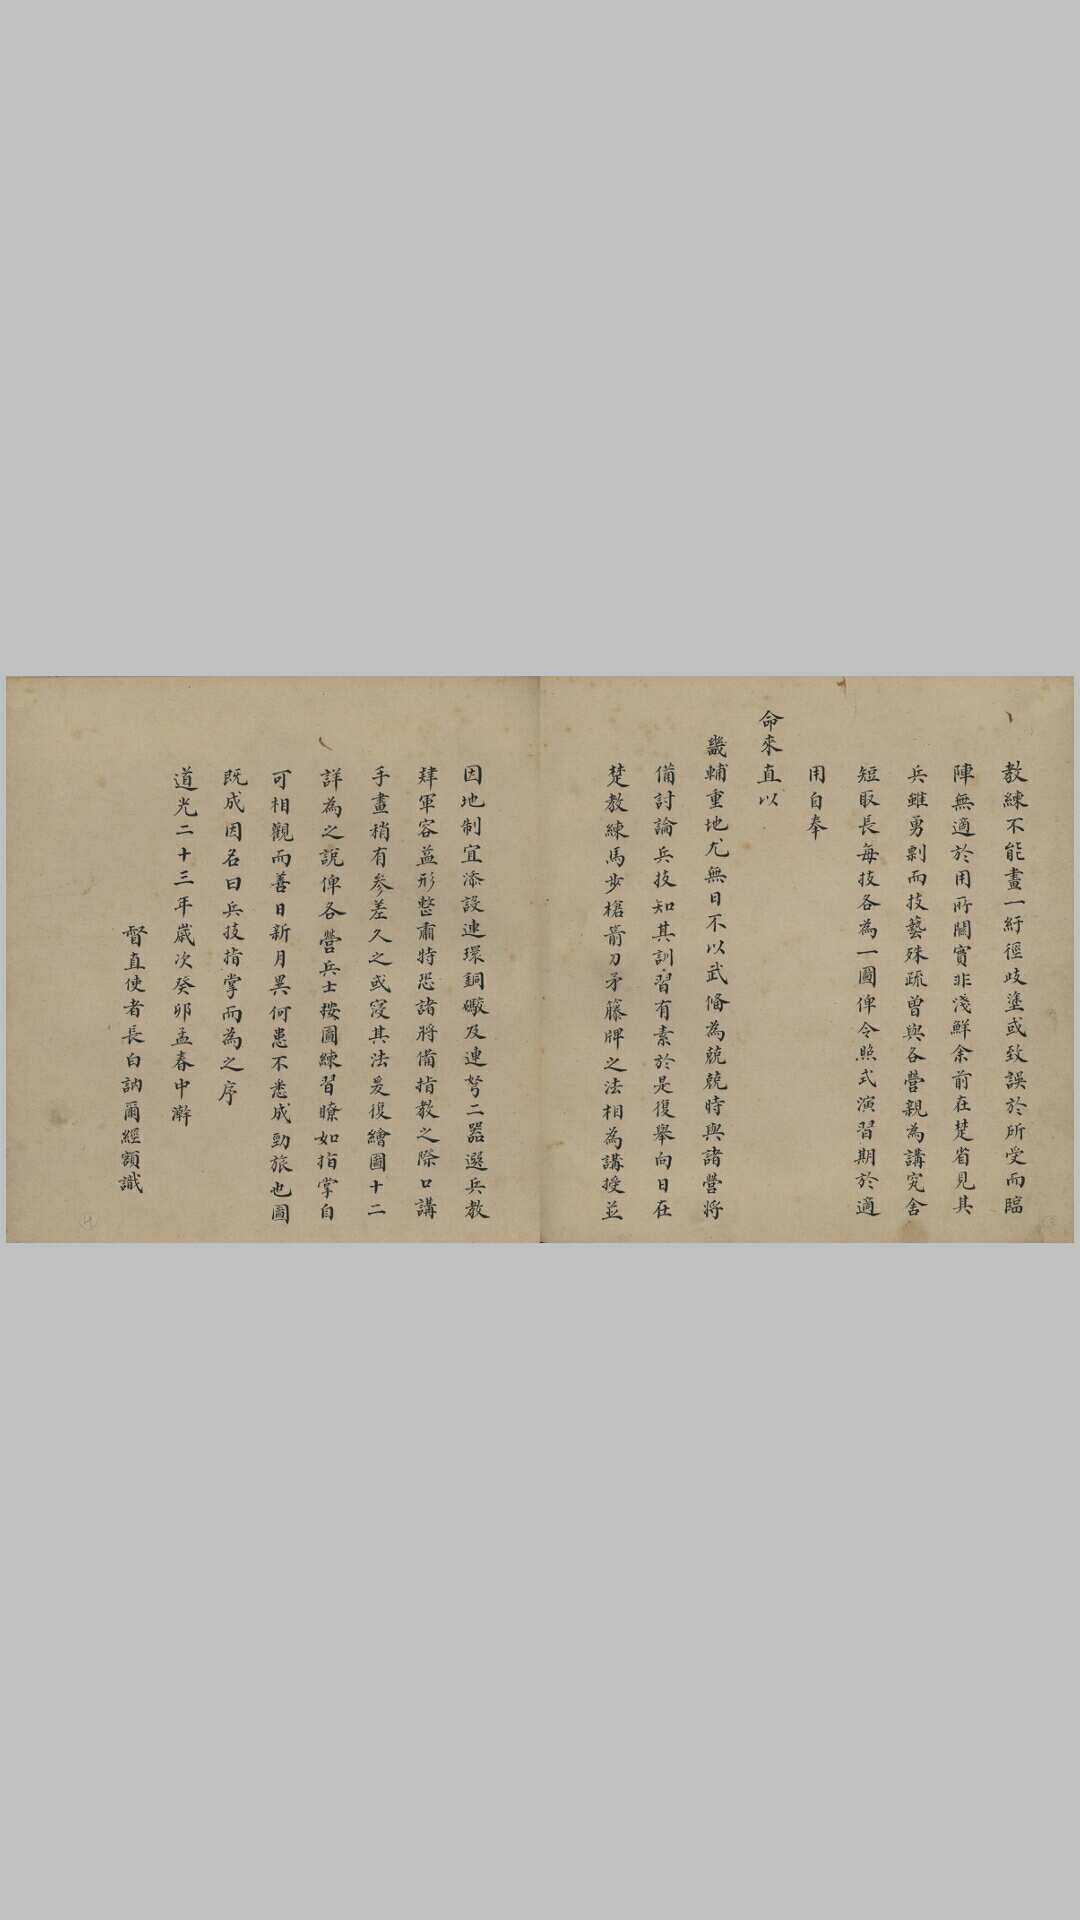 教練不能畫一紆徑歧塗或致誤於所受而臨
陣無適於用所關實非淺鮮余前在楚省見其
兵雖勇剽而技藝殊疏曾與各營親為講究舍
短取長每技各為一圖俾令照式演習期於適
用自奉
命來直以
畿輔重地尤無日不以武備為兢兢時與諸營將
備討論兵技知其訓習有素於是復舉向日在
楚教練馬步槍箭刀矛籐牌之法相為講授並
因地制宜添設連環銅礮及連弩二器選兵教
肄軍容益形整肅特恐諸將備指教之際口講
手畫稍有參差久之或寖其法爰復繪圖十二
詳為之說俾各營兵士按圖練習瞭如指掌自
可相觀而善日新月異何患不悉成勁旅也圖
既成因名曰兵技指掌而為之序
道光二十三年歲次癸卯孟春中澣
督直使者長白訥爾經額識